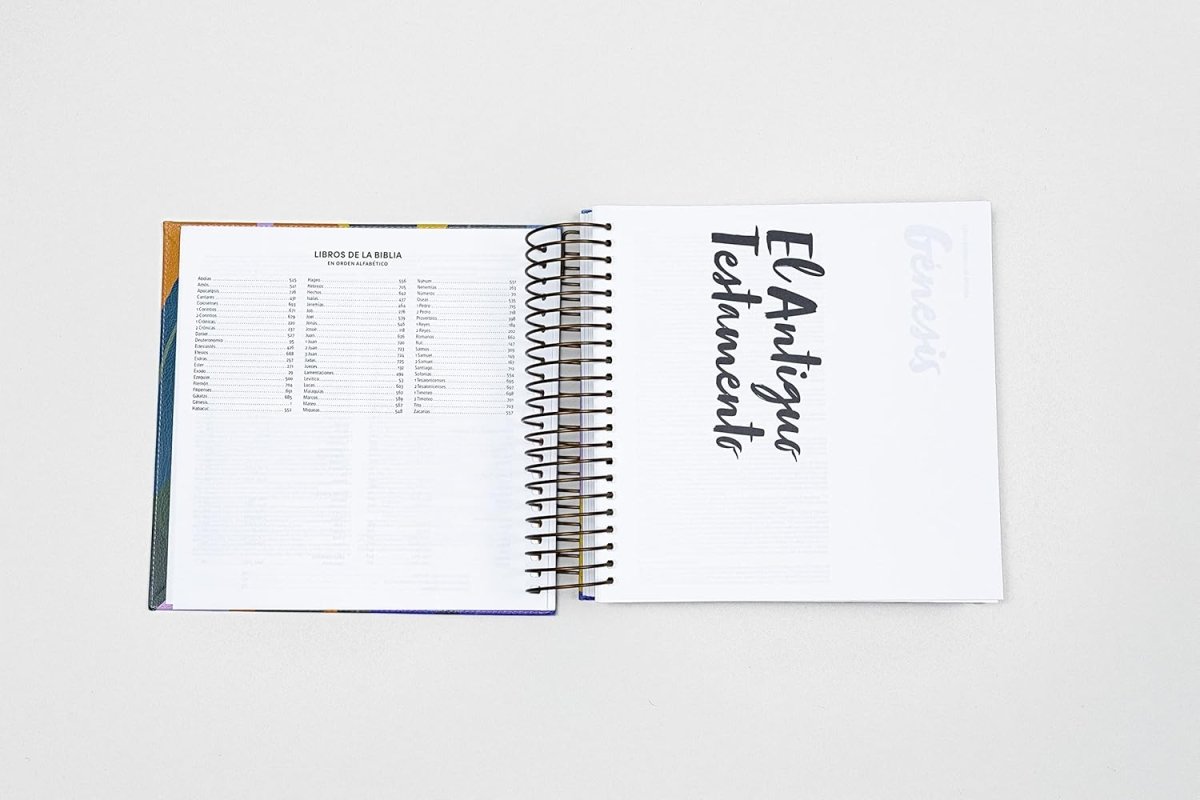 LIBROS DE LA BIBLIA
EN ORDEN ALFABÉTICO
Abdías 545
Amós 541
Apocalipsis 726
Cantares 431
Colosenses 693
1 Corintios 671
2 Corintios 679
1 Crónicas 220
2 Crónicas 237
Daniel 527
Deuteronomio 95
Eclesiastés 426
Efesios 688
Esdras 257
Ester 271
Éxodo 29
Ezequiel 500
Filemón
Filipenses 691
Gálatas 685
Génesis 1
Habacuc 552
Hageo 556
Hebreos 705
Hechos 642
Isaías 437
Jeremías 464
Job 276
Joel 539
Jonás 546
Josué 118
Juan 626
1 Juan 720
2 Juan 723
3 Juan 724
Judas 725
Jueces 132
Lamentaciones 496
Levítico 53
Lucas 603
Malaquías 562
Marcos 589
Mateo 567
Miqueas 548
Nahúm 551
Nehemías 263
Números 70
Oseas 535
1 Pedro 715
2 Pedro 718
Proverbios 398
1 Reyes 184
2 Reyes 202
Romanos 662
Rut 147
Salmos 303
1 Samuel 149
2 Samuel 167
Santiago 712
Sofonías 554
1 Tesalonicenses 695
2 Tesalonicenses 697
1 Timoteo 698
2 Timoteo 701
Tito 703
Zacarías 557
El Antiguo
Testamento
Génesis